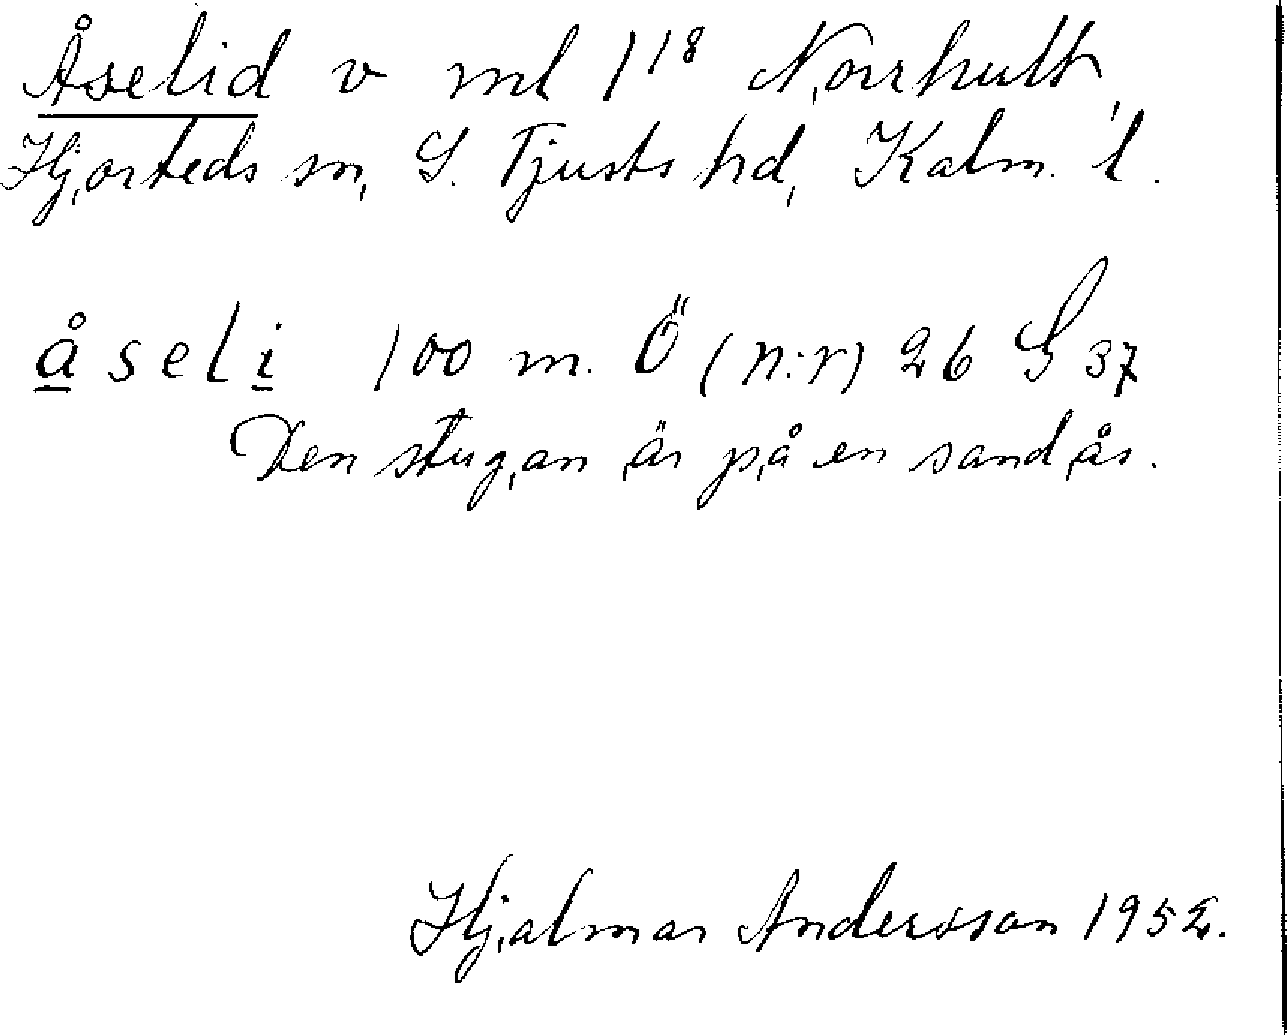 Åselid v ml 1¹⁸ Norrhult,
Hjorteds sn, S. Tjusts hd, Kalm. l.
å s e l i 100 m. Ö (n:r) 26 S 37
Den stugan är på en sandås.
Hjalmar Andersson 1952.